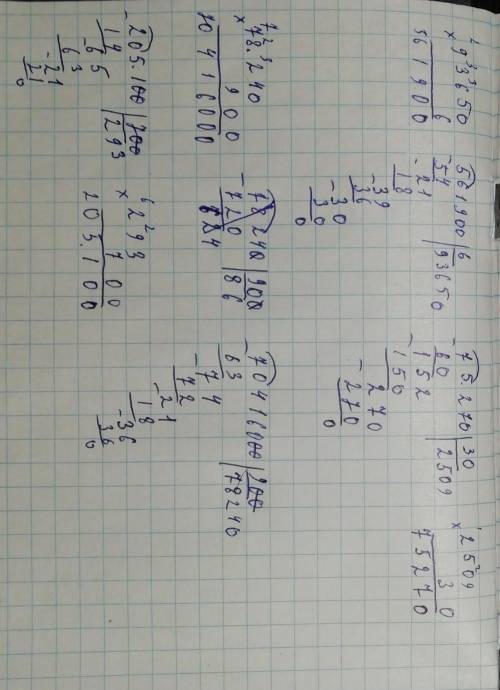 × 93650
6
561900
- 561900 | 6
54 | 93650
- 21
18
- 39
36
- 30
30
0
- 75.270 | 30
60 | 2509
- 152
150
- 270
270
0
× 2509
30
75270
× 78.240
900
70416000
- 78240 | 900
720 | 86
- 70416000 | 900
63 | 78240
- 74
72
- 21
18
- 36
36
0
- 205.100 | 700
14 | 293
- 65
63
- 21
21
0
× 293
700
205.100